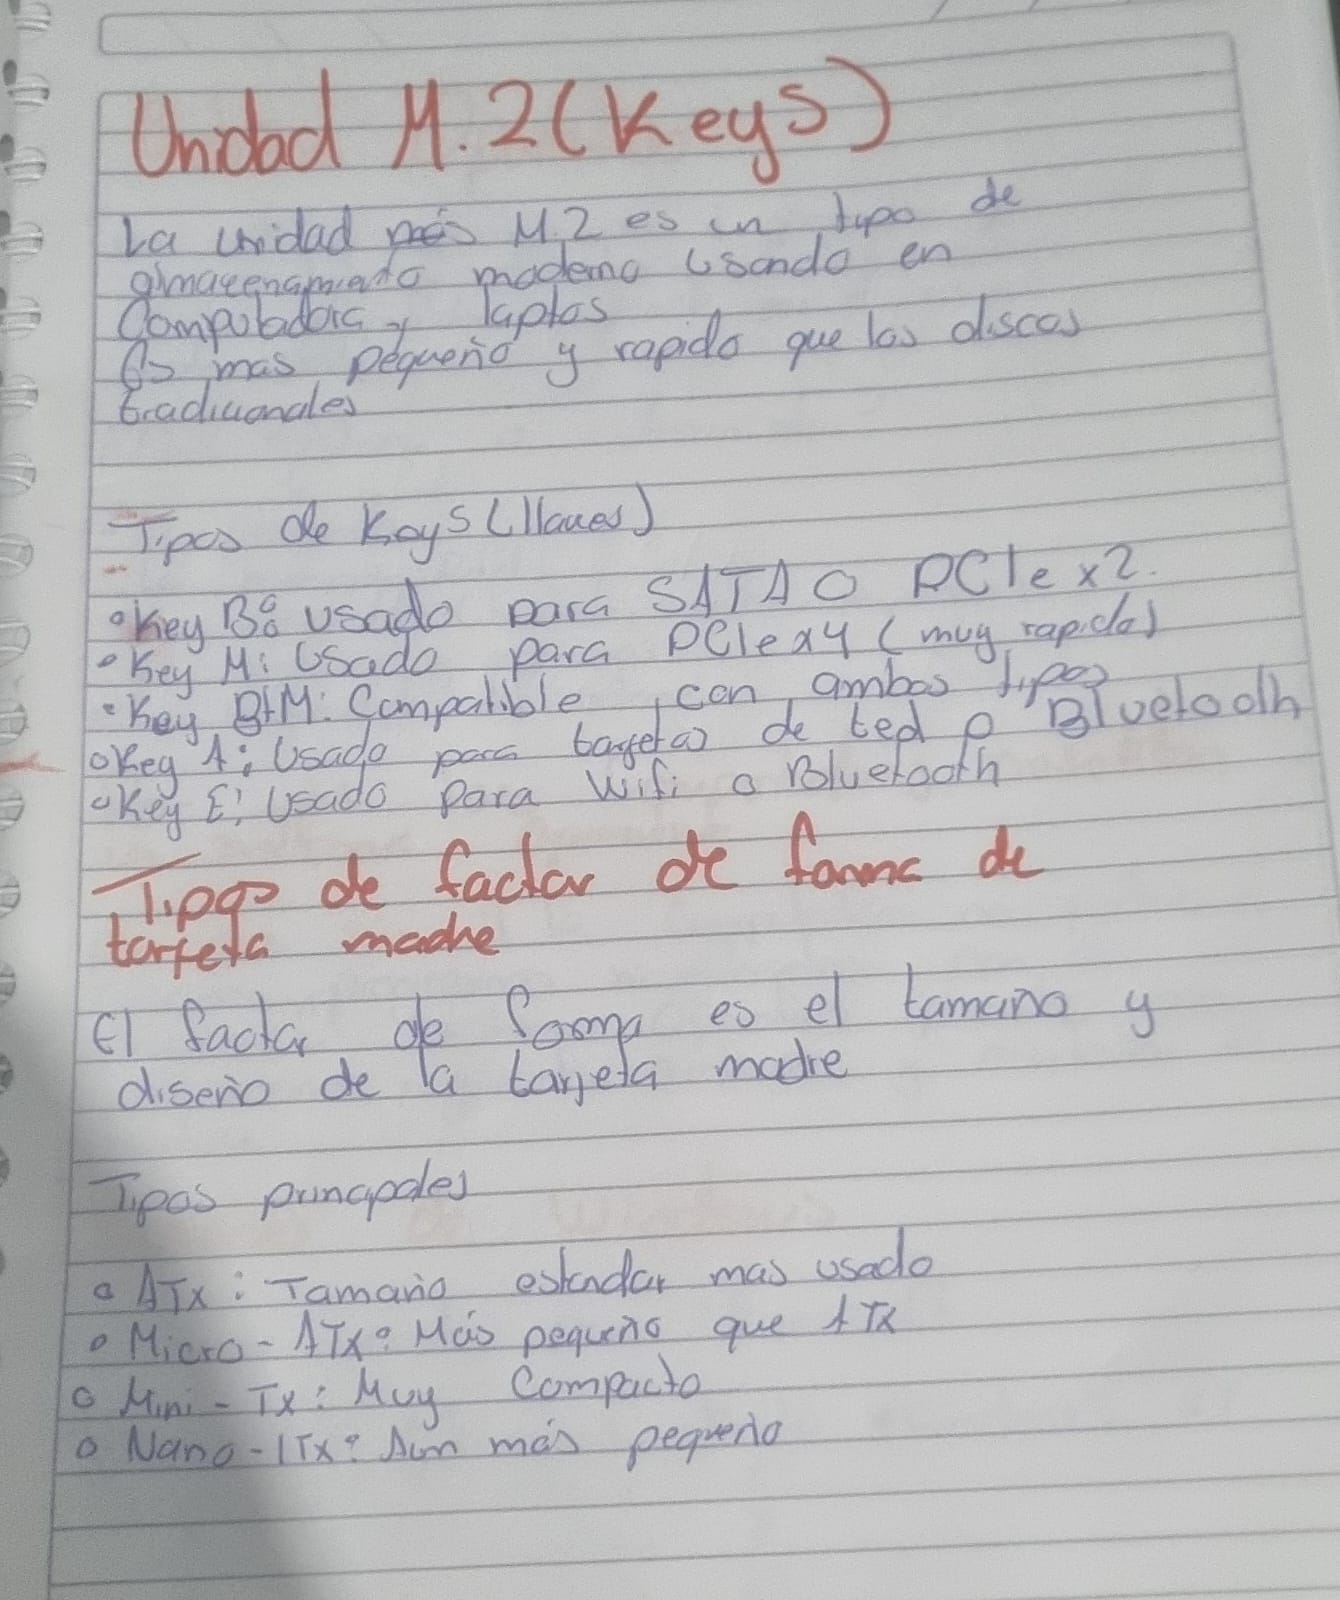 Unidad M.2 (Keys)
La unidad M.2 es un tipo de
almacenamiento moderno usando en
Computadora y laptos
Es mas pequeño y rapido que los discos
tradicionales
Tipos de Keys (llaves)
• Key B: Usado para SATA O PCIe x2.
• Key M: Usado para PCIe x4 (muy rapido)
• Key B+M: Compatible con ambos tipos
• Key A: Usado para tarjetas de red o Bluetooth
• Key E: Usado Para Wifi o Bluetooth
Tipos de factor de forma de
tarjeta madre
El factor de forma es el tamaño y
diseño de la tarjeta madre
Tipos principales
• ATX: Tamaño estandar mas usado
• Micro-ATX: Más pequeño que ATX
• Mini-Tx: Muy Compacto
• Nano-ITX: Aun más pequeño